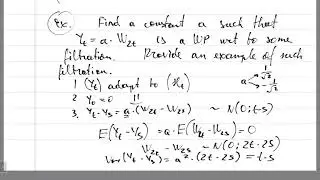 Ex. Find a constant a such that
Y_t = a · W_{2t} is a WP wrt to some
filtration. Provide an example of such
filtration.
1 (Y_t) adapt to (ℋ_t) a < √2 -1/√2
2 Y_0 = 0
3. Y_t - Y_s = a · (W_{2t} - W_{2s}) ~ N(0, t-s)
E(Y_t - Y_s) = a · E(W_{2t} - W_{2s}) = 0
W_{2t} - W_{2s} ~ N(0, 2t-2s)
Var(Y_t - Y_s) = a² · (2t - 2s) = t-s